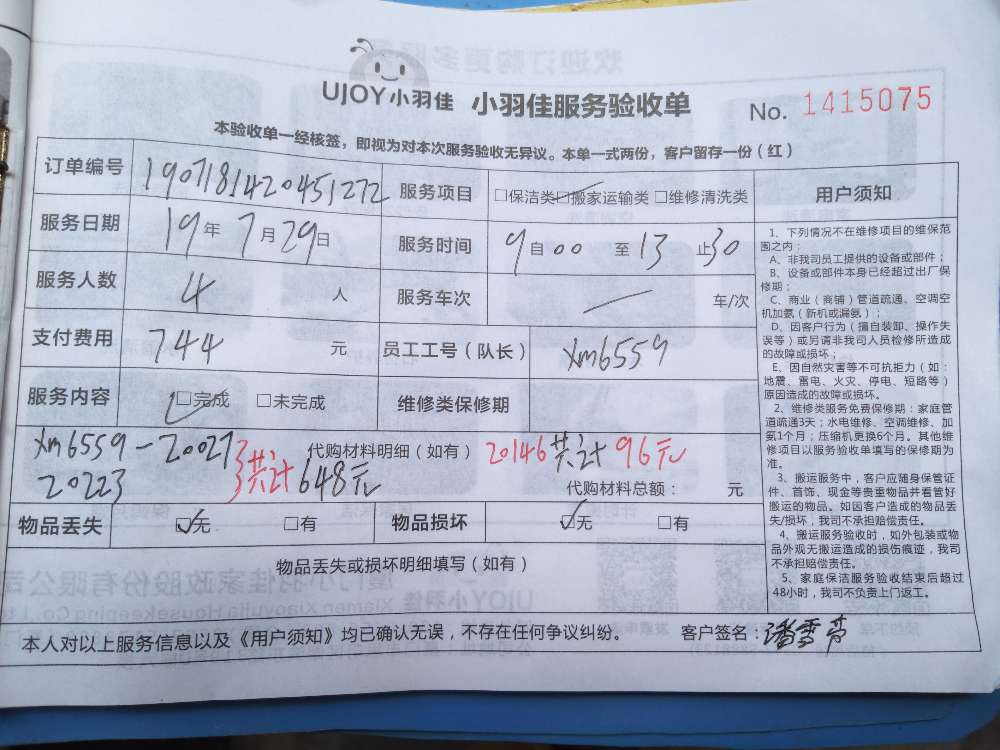 UJOY小羽佳 小羽佳服务验收单 No. 1415075
本验收单一经核签，即视为对本次服务验收无异议。本单一式两份，客户留存一份（红）
订单编号 1907181420451272 服务项目 □保洁类□搬家运输类 □维修清洗类 用户须知
服务日期 19年7月29日 服务时间 9自00至13止30
服务人数 4人 服务车次 车/次
支付费用 744元 员工工号（队长） xm6559
服务内容 □完成 □未完成 维修类保修期
xm6559-20027 代购材料明细（如有） 20146共计96元
20223 共计648元 代购材料总额： 元
物品丢失 □无 □有 物品损坏 □无 □有
物品丢失或损坏明细填写（如有）
1、下列情况不在维修项目的维保范
围之内：
A、非我司员工提供的设备或部件；
B、设备或部件本身已经超过出厂保
修期；
C、商业（商铺）管道疏通、空调空
机加氨（新机或漏氨）；
D、因客户行为（擅自装卸、操作失
误等）或另请非我司人员检修所造成
的故障或损坏；
E、因自然灾害等不可抗拒力（如：
地震、雷电、火灾、停电、短路等）
原因造成的故障或损坏。
2、维修类服务免费保修期：家庭管
道疏通3天；水电维修、空调维修、加
氨1个月；压缩机更换6个月。其他维
修项目以服务验收单填写的保修期为
准。
3、搬运服务中，客户应随身保管证
件、首饰、现金等贵重物品并看管好
搬运的物品。如因客户造成的物品丢
失/损坏，我司不承担赔偿责任。
4、搬运服务验收时，如外包装或物
品外观无搬运造成的损伤痕迹，我司
不承担赔偿责任。
5、家庭保洁服务验收结束后超过
48小时，我司不负责上门返工。
本人对以上服务信息以及《用户须知》均已确认无误，不存在任何争议纠纷。 客户签名：潘雪芳